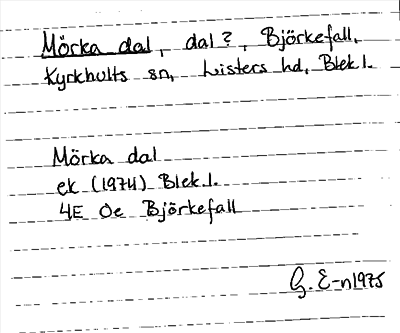 Mörka dal, dal?, Björkefall,
Kyrkhults sn, Listers hd, Blek l.
Mörka dal
ek (1974) Blek l.
4E 0e Björkefall
G. E-n 1975